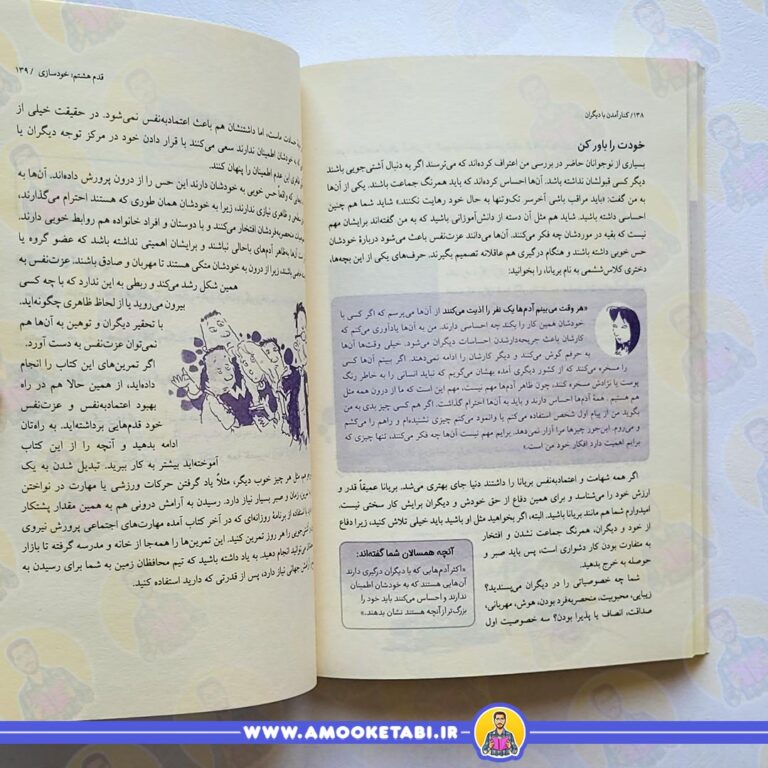 ۱۳۸/ کنار آمدن با دیگران
خودت را باور کن
بسیاری از نوجوانان حاضر در بررسی من اعتراف کرده‌اند که می‌ترسند اگر به دنبال آشتی‌جویی باشند
دیگر کسی قبولشان نداشته باشد. آن‌ها احساس کرده‌اند که باید همرنگ جماعت باشند. یکی از آن‌ها
به من گفت: «باید مراقب باشی آخرسر تک‌وتنها به حال خود رهایت نکنند.» شاید شما هم چنین
احساسی داشته باشید. شاید هم مثل آن دسته از دانش‌آموزانی باشید که به من گفته‌اند برایشان مهم
نیست که بقیه در موردشان چه فکر می‌کنند. آن‌ها می‌دانند عزت‌نفس باعث می‌شود دربارهٔ خودشان
حس خوبی داشته باشند و هنگام درگیری هم عاقلانه تصمیم بگیرند. حرف‌های یکی از این بچه‌ها،
دختری کلاس‌ششمی به نام بریانا، را بخوانید:
«هر وقت می‌بینم آدم‌ها یک نفر را اذیت می‌کنند از آن‌ها می‌پرسم که اگر کسی با
خودشان همین کار را بکند چه احساسی دارند. من به آن‌ها یادآوری می‌کنم که
کارشان باعث جریحه‌دارشدن احساسات دیگران می‌شود. خیلی وقت‌ها آن‌ها
به حرفم گوش می‌کنند و دیگر کارشان را ادامه نمی‌دهند. اگر ببینم آن‌ها کسی
را مسخره می‌کنند که از کشور دیگری آمده بهشان می‌گویم که نباید انسانی را به خاطر رنگ
پوست یا نژادش مسخره کنند، چون ظاهر آدم‌ها مهم نیست، مهم این است که ما از درون همه مثل
هم هستیم. همهٔ آدم‌ها احساس دارند و باید به آن‌ها احترام گذاشت. اگر هم کسی چیز بدی به من
بگوید من از پیام اول شخص استفاده می‌کنم یا وانمود می‌کنم چیزی نشنیده‌ام و راهم را می‌کشم
و می‌روم. این‌جور چیزها مرا آزار نمی‌دهد. برایم مهم نیست آن‌ها چه فکر می‌کنند، تنها چیزی که
برایم اهمیت دارد افکار خود من است.»
اگر همه شهامت و اعتمادبه‌نفس بریانا را داشتند دنیا جای بهتری می‌شد. بریانا عمیقاً قدر و
ارزش خود را می‌شناسد و برای همین دفاع از حق خودش و دیگران برایش کار سختی نیست.
امیدوارم شما هم مانند بریانا باشید. البته، اگر بخواهید مثل او باشید باید خیلی تلاش کنید، زیرا دفاع
از خود و دیگران، همرنگ جماعت نشدن و افتخار
به متفاوت بودن کار دشواری است، پس باید صبر و
حوصله به خرج بدهید.
شما چه خصوصیاتی را در دیگران می‌پسندید؟
زیبایی، محبوبیت، منحصربه‌فرد بودن، هوش، مهربانی،
صداقت، انصاف یا پذیرا بودن؟ سه خصوصیت اول
آنچه همسالان شما گفته‌اند:
«اکثر آدم‌هایی که با دیگران درگیری دارند
آن‌هایی هستند که به خودشان اطمینان
ندارند و احساس می‌کنند باید خود را
بزرگ‌تر از آنچه هستند نشان بدهند.»
قدم هشتم: خودسازی / ۱۳۹
ماست، اما داشتنشان هم باعث اعتمادبه‌نفس نمی‌شود. در حقیقت خیلی از
خودشان اطمینان ندارند سعی می‌کنند با قرار دادن خود در مرکز توجه دیگران یا
این عدم اطمینان را پنهان کنند.
که واقعاً حس خوبی به خودشان دارند این حس را از درون پرورش داده‌اند. آن‌ها به
و ظاهری نیازی ندارند، زیرا به خودشان همان طوری که هستند احترام می‌گذارند،
منحصربه‌فردشان افتخار می‌کنند و با دوستان و افراد خانواده هم روابط خوبی دارند.
آن‌ها به‌ظاهر آدم‌های باحالی نباشند و برایشان اهمیتی نداشته باشد که عضو گروه یا
باشند، زیرا از درون به خودشان متکی هستند تا مهربان و صادق باشند. عزت‌نفس به
همین شکل رشد می‌کند و ربطی به این ندارد که با چه کسی
بیرون می‌روید یا از لحاظ ظاهری چگونه‌اید.
با تحقیر دیگران و توهین به آن‌ها هم
نمی‌توان عزت‌نفس به دست آورد.
اگر تمرین‌های این کتاب را انجام
داده‌اید، از همین حالا هم در راه
بهبود اعتمادبه‌نفس و عزت‌نفس
خود قدم‌هایی برداشته‌اید. به راه‌تان
ادامه بدهید و آنچه را از این کتاب
آموخته‌اید بیشتر به کار ببرید. تبدیل شدن به یک
هم مثل هر چیز خوب دیگر، مثلاً یاد گرفتن حرکات ورزشی یا مهارت در نواختن
زمان و صبر بسیار نیاز دارد. رسیدن به آرامش درونی هم به همین مقدار پشتکار
استفاده از برنامهٔ روزانه‌ای که در آخر کتاب آمده مهارت‌های اجتماعی پرورش نیروی
را هر روز تمرین کنید. این تمرین‌ها را همه‌جا از خانه و مدرسه گرفته تا بازار
می‌توانید انجام دهید. به یاد داشته باشید که تیم محافظان زمین به شما برای رسیدن به
جهانی نیاز دارد، پس از قدرتی که دارید استفاده کنید.
WWW.AMOOKETABI.IR